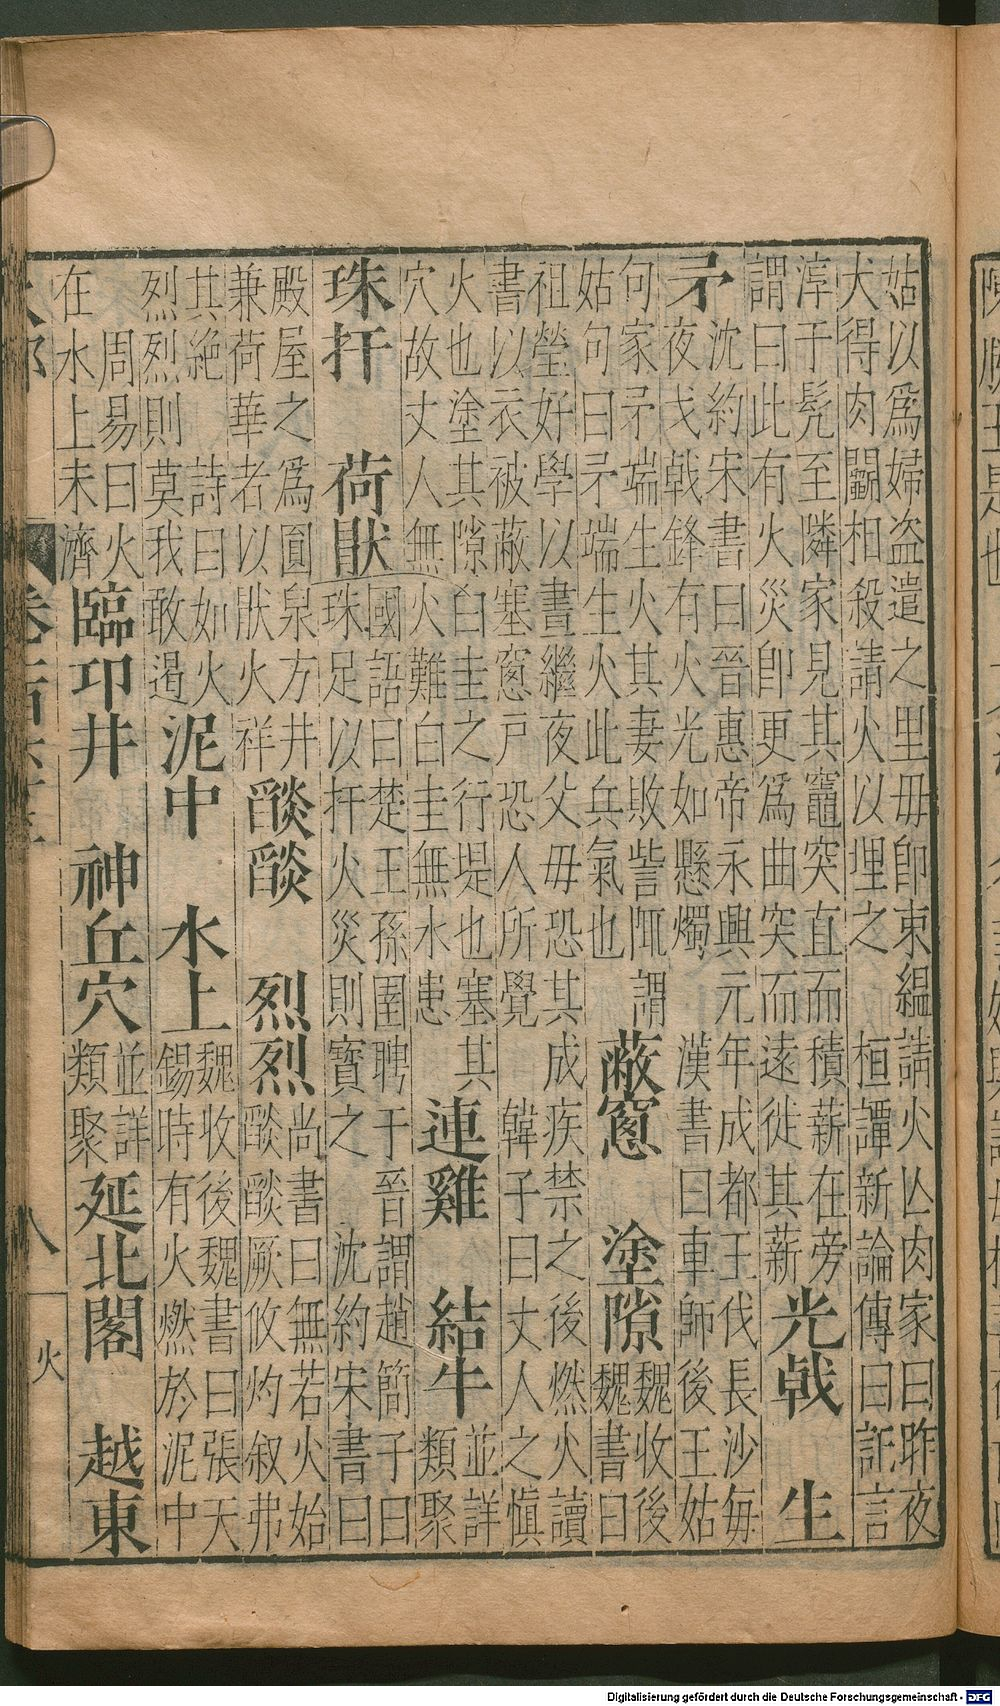 姑以爲婦盜遣之里毋卽束緼請火亾肉家曰昨夜
犬得肉鬭相殺請火以埋之 桓譚新論傳曰記言
淳于髡至隣家見其竈突直而積薪在旁
謂曰此有火災卽更爲曲突而遠徙其薪
光戟 生
矛
沈約宋書曰晉惠帝永興元年成都王伐長沙每
夜戈戟鋒有火光如懸燭 漢書曰車師後王姑
句家矛端生火其妻敗訾陬謂
姑句曰矛端生火此兵氣也
蔽窻 塗隙
魏收後
魏書曰
祖瑩好學以晝繼夜父毋恐其成疾禁之後燃火讀
書以衣被蔽塞窻戶恐人所覺 韓子曰丈人之愼
火也塗其隙白圭之行堤也塞其
穴故丈人無火難白圭無水患
連雞 結牛
並詳
類聚
珠扞 荷猒
國語曰楚王孫圉聘于晉謂趙簡子曰
珠足以扞火災則寶之 沈約宋書曰
殿屋之爲圎泉方井
兼荷華者以猒火祥
燄燄 烈烈
尚書曰無若火始
燄燄厥攸灼叙弗
其絕 詩曰如火
烈烈則莫我敢遏
泥中 水上
魏收後魏書曰張天
錫時有火燃於泥中
周易曰火
在水上未濟
臨卭井 神丘穴
並詳
類聚
延北閣 越東
卷
八
火
Digitalisierung gefördert durch die Deutsche Forschungsgemeinschaft - DFG